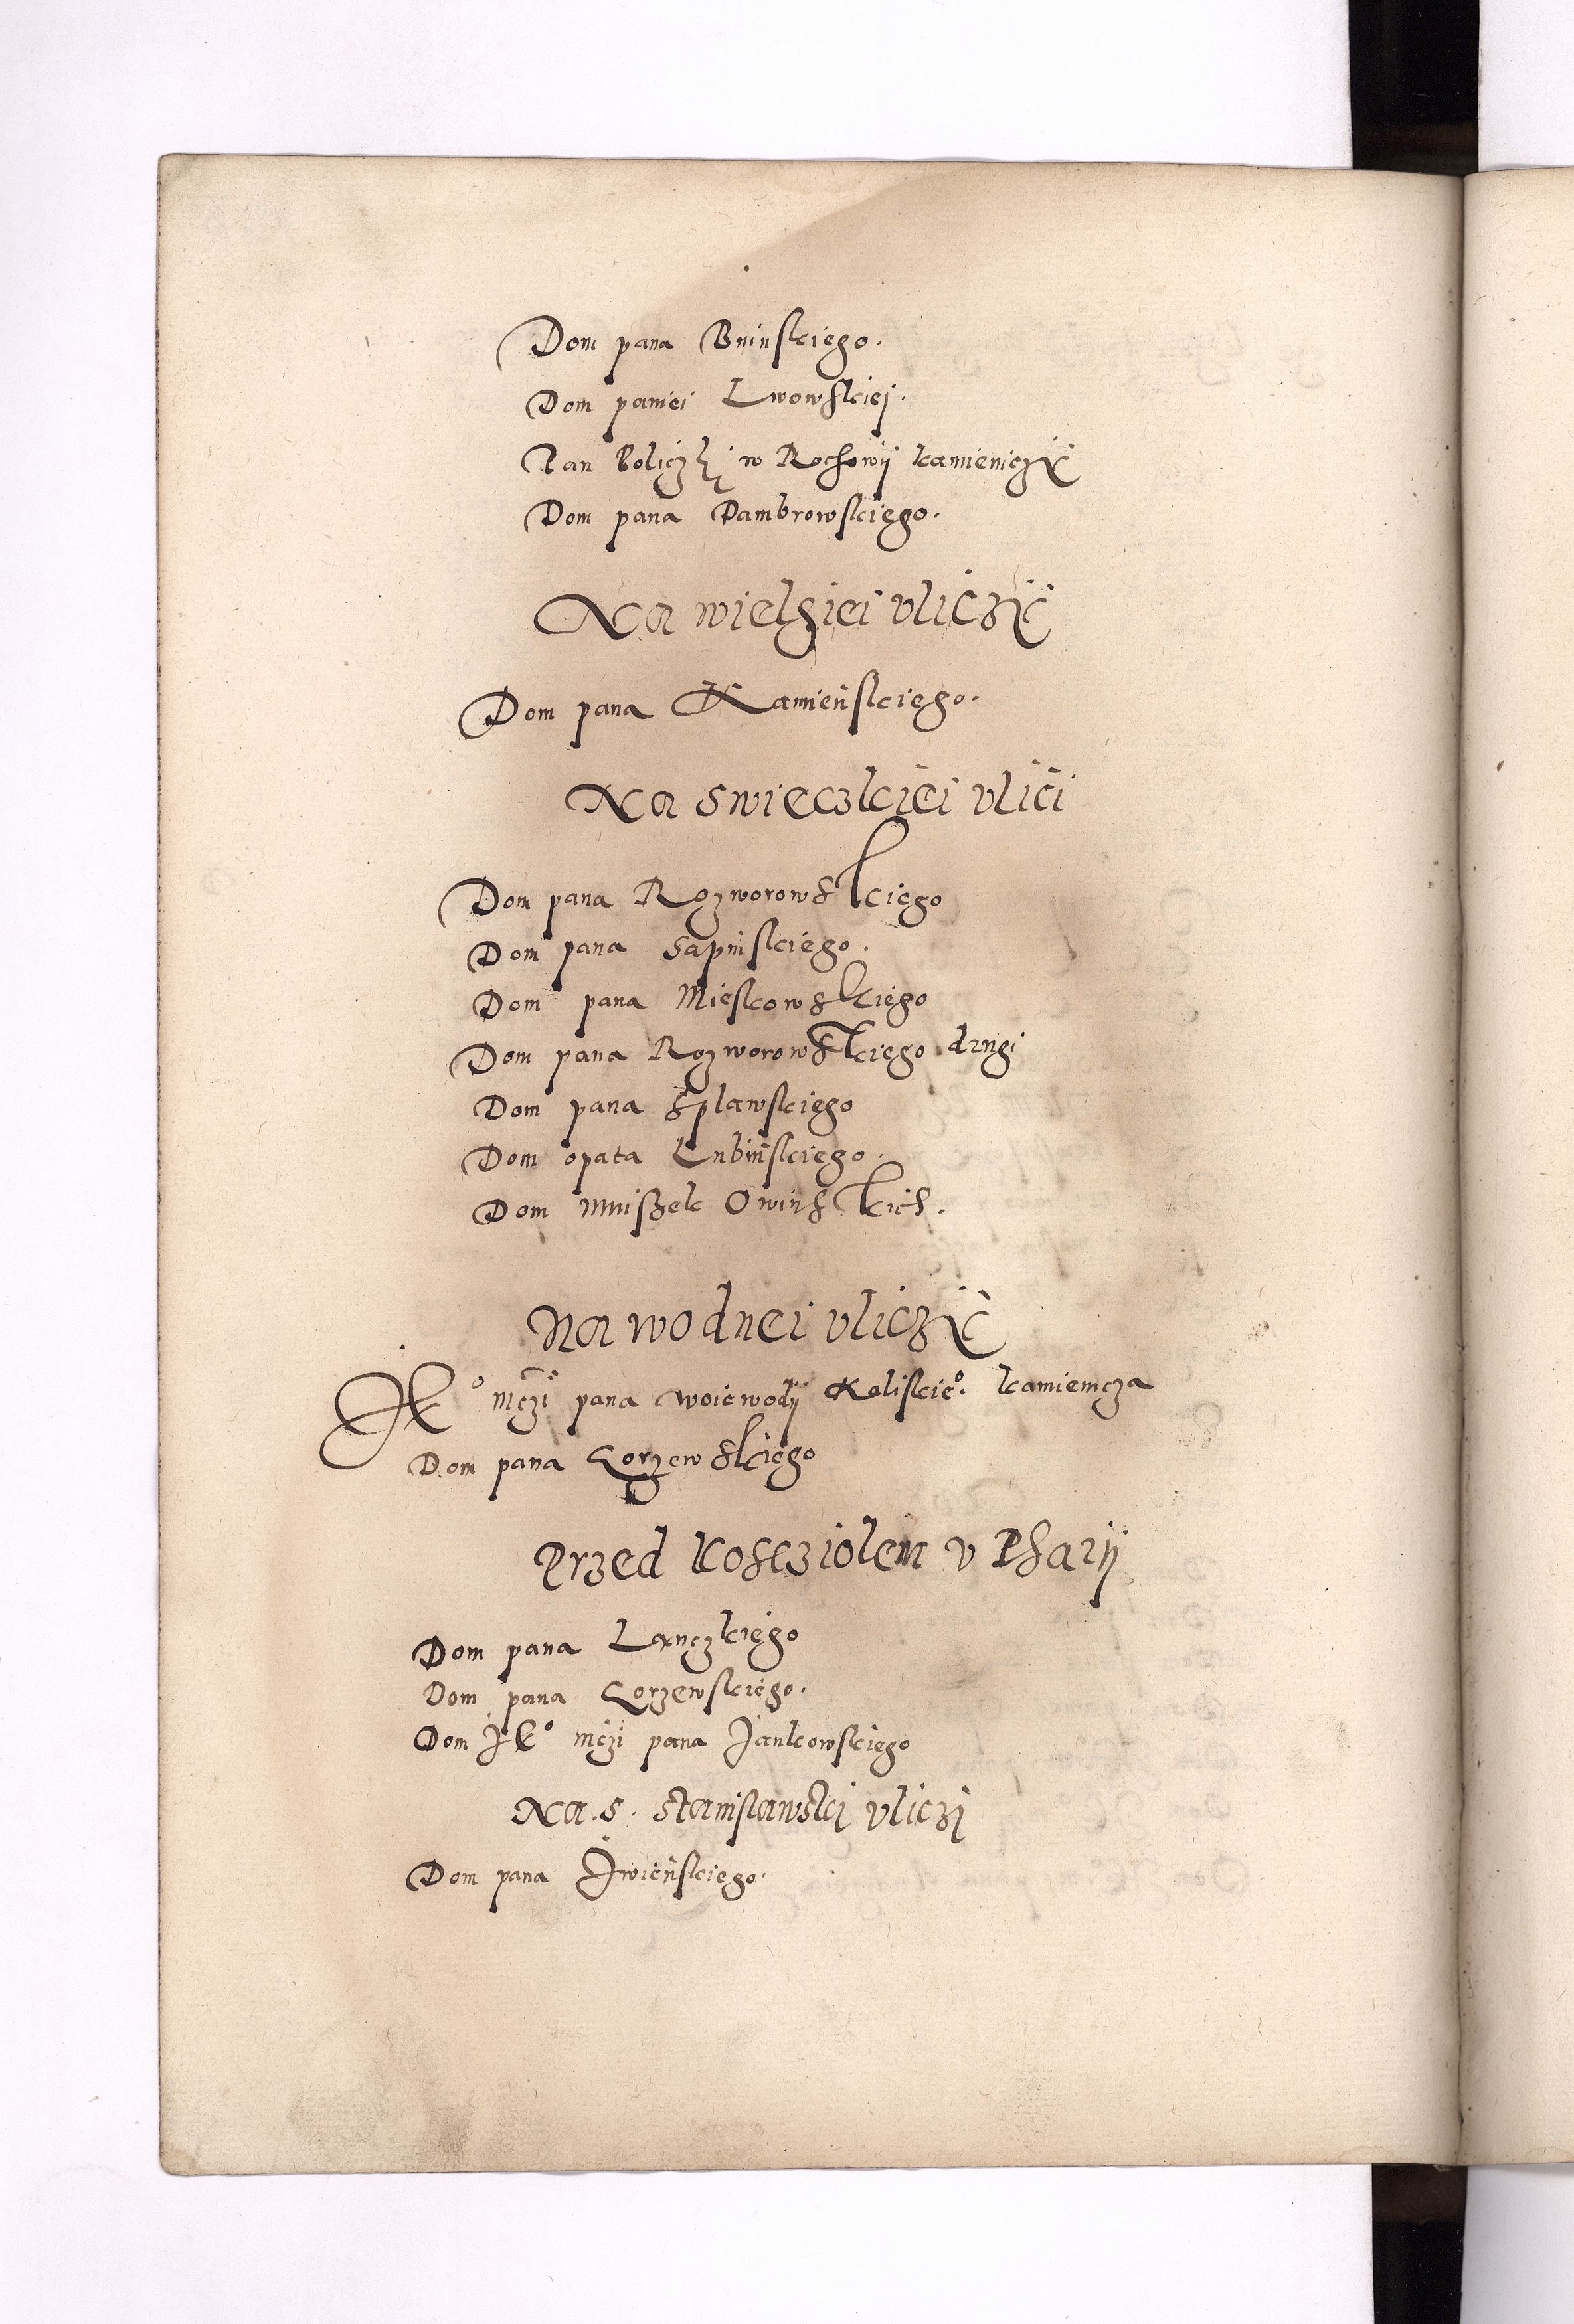 Dom pana Bninskiego.
Dom paniei Lwowskiej.
Pan w Rochowÿ kamieniczÿ
Dom pana Dambrowskiego.
Na wielgiei vliczÿ
Dom pana Kamienskiego.
Na swieczkiei vlici
Dom pana Rozworowskiego
Dom pana Sapinskiego.
Dom pana Mieskowskiego
Dom pana Rozworowskiego drugi
Dom pana Splawskiego
Dom opata Lubinskiego.
Dom mniszek Owinskich.
Na wodnei vliczÿ
Jkº mczi pana woiewodÿ Kaliskieº. kamienicza
Dom pana Gorzewskiego
Przed koscziolem v Pharÿ
Dom pana Lanczkiego
Dom pana Gorzewskiego.
Dom Jkº mczi pana Jankowskiego
Na. S. Stanislawskj vliczj
Dom pana Jwienskiego.